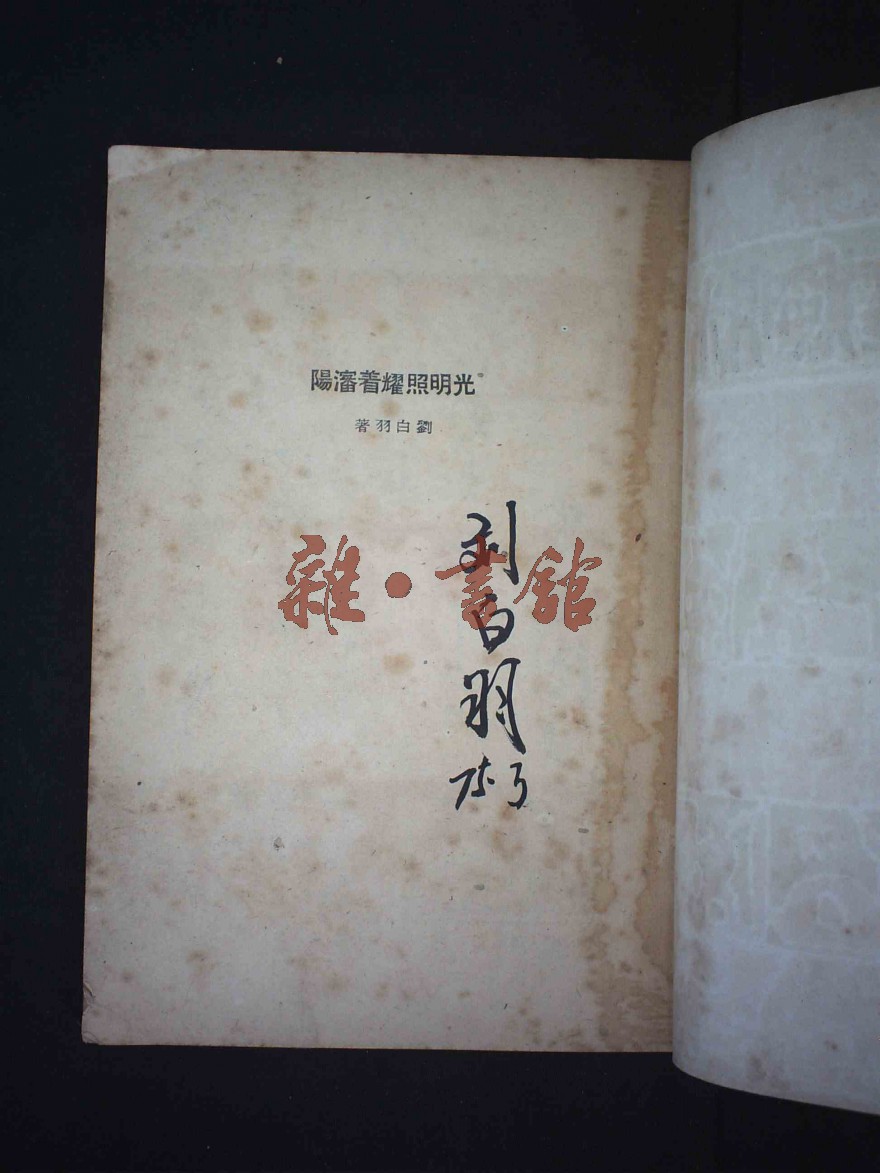 光明照耀着瀋陽
劉白羽著
刘白羽
雜·書館